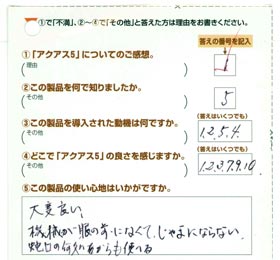 ①で「不満」、②～④で「その他」と答えた方は理由をお書きください。
答えの番号を記入
①「アクアス5」についてのご感想。
(理由 )
1
②この製品を何で知りましたか。
(その他 )
5
③この製品を導入された動機は何ですか。
(答えはいくつでも)
(その他 )
1.2.5.4.
④どこで「アクアス5」の良さを感じますか。
(答えはいくつでも)
(その他 )
1.2.3.7.9.10.
⑤この製品の使い心地はいかがですか。
大変良い。
機械が眼の前になくて、じゃまにならない。
蛇口の 使える